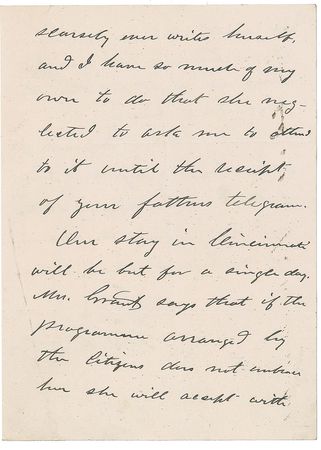 scarsely ever writes herself,
and I have so much of my
own to do that she neg-
lected to ask me to attend
to it until the receipt
of your fathers telegram.
Our stay in Cincinnati
will be but for a single day.
Mrs. Grant says that if the
programme arranged by
the Citizens does not embrace
her she will accept with